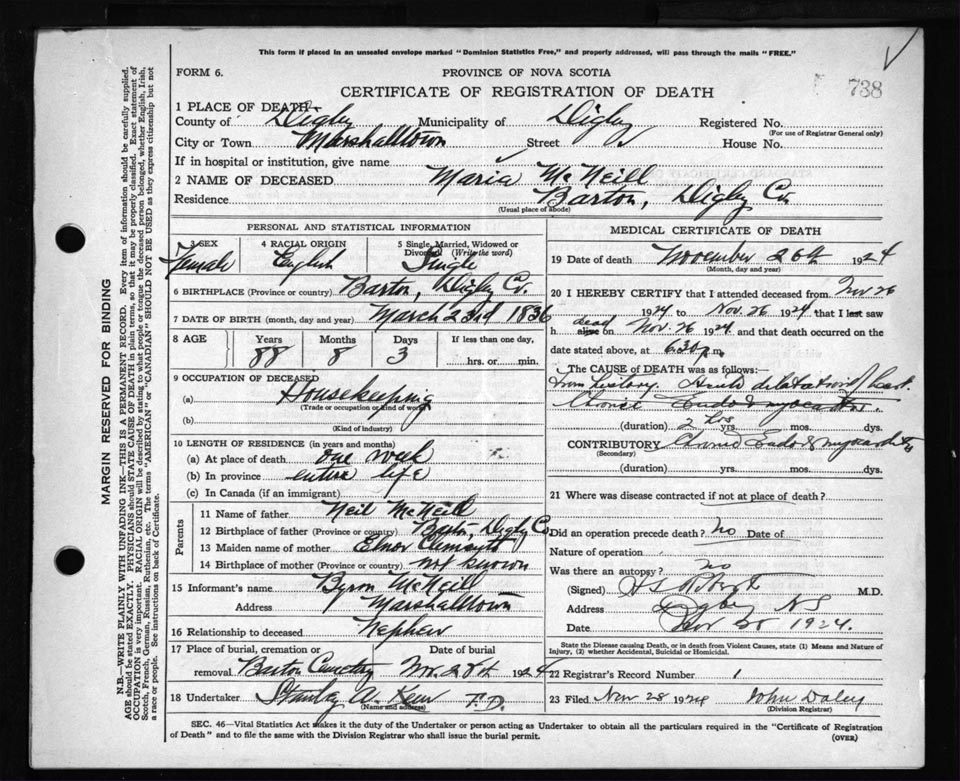 This form if placed in an unsealed envelope marked "Dominion Statistics Free," and property addressed, will pass through the mails "FREE."
FORM 6.
PROVINCE OF NOVA SCOTIA
CERTIFICATE OF REGISTRATION OF DEATH
738
1 PLACE OF DEATH
County of Digby Municipality of Digby Registered No.
(For use of Registrar General only)
City or Town Marshalltown Street House No.
If in hospital or institution, give name
2 NAME OF DECEASED Maria McNeill
Residence Barton, Digby Co.
(Usual place of abode)
PERSONAL AND STATISTICAL INFORMATION
3 SEX Female
4 RACIAL ORIGIN English
5 Single, Married, Widowed or Divorced (Write the word) Single
6 BIRTHPLACE (Province or country) Barton, Digby Co.
7 DATE OF BIRTH (month, day and year) March 23rd 1836
8 AGE Years Months Days If less than one day,
88 8 3 hrs. or min.
9 OCCUPATION OF DECEASED
(a) Housekeeping
(Trade or occupation or kind of work)
(b)
(Kind of industry)
10 LENGTH OF RESIDENCE (in years and months)
(a) At place of death one week
(b) In province entire life
(c) In Canada (if an immigrant)
Parents
11 Name of father Neil McNeill
12 Birthplace of father (Province or country) Barton, Digby Co.
13 Maiden name of mother
14 Birthplace of mother (Province or country) not known
15 Informant's name Byron McNeill
Address Marshalltown
16 Relationship to deceased Nephew
17 Place of burial, cremation or removal Barton Cemetery Date of burial Nov. 28th 1924
18 Undertaker Stanley A. F.D.
(Name and address)
MEDICAL CERTIFICATE OF DEATH
19 Date of death November 26th 1924
(Month, day and year)
20 I HEREBY CERTIFY that I attended deceased from Nov 26
1924 to Nov. 26 1924 that I last saw
h dead alive on Nov. 26 1924 and that death occurred on the
date stated above, at 6.30 p m
The CAUSE OF DEATH was as follows:
From history. Acute dilatation heart
Chronic Endo & myocarditis.
(duration) 2 hrs yrs. mos. dys.
CONTRIBUTORY Chronic Endo & myocarditis
(Secondary)
(duration) yrs. mos. dys.
21 Where was disease contracted if not at place of death?
Did an operation precede death? no Date of
Nature of operation
Was there an autopsy? no
(Signed) M.D.
Address Digby NS
Date 1924.
State the Disease causing Death, or in death from Violent Causes, state (1) Means and Nature of Injury, (2) whether Accidental, Suicidal or Homicidal.
22 Registrar's Record Number 1
23 Filed Nov 28 1924 John Daley
(Division Registrar)
SEC. 46—Vital Statistics Act makes it the duty of the Undertaker or person acting as Undertaker to obtain all the particulars required in the "Certificate of Registration
of Death" and to file the same with the Division Registrar who shall issue the burial permit.
(OVER)
MARGIN RESERVED FOR BINDING
N.B.—WRITE PLAINLY WITH UNFADING INK—THIS IS A PERMANENT RECORD. Every item of information should be carefully supplied.
AGE should be stated EXACTLY. PHYSICIANS should STATE CAUSE OF DEATH in plain terms, so that it may be properly classified. Exact statement of
OCCUPATION is very important. RACIAL ORIGIN will be described by stating to what people or tongue the deceased person belonged, whether English, Irish,
Scotch, French, German, Russian, Ruthenian, etc. The terms "AMERICAN" or "CANADIAN" SHOULD NOT BE USED as they express citizenship but not
a race or people. See instructions on back of Certificate.